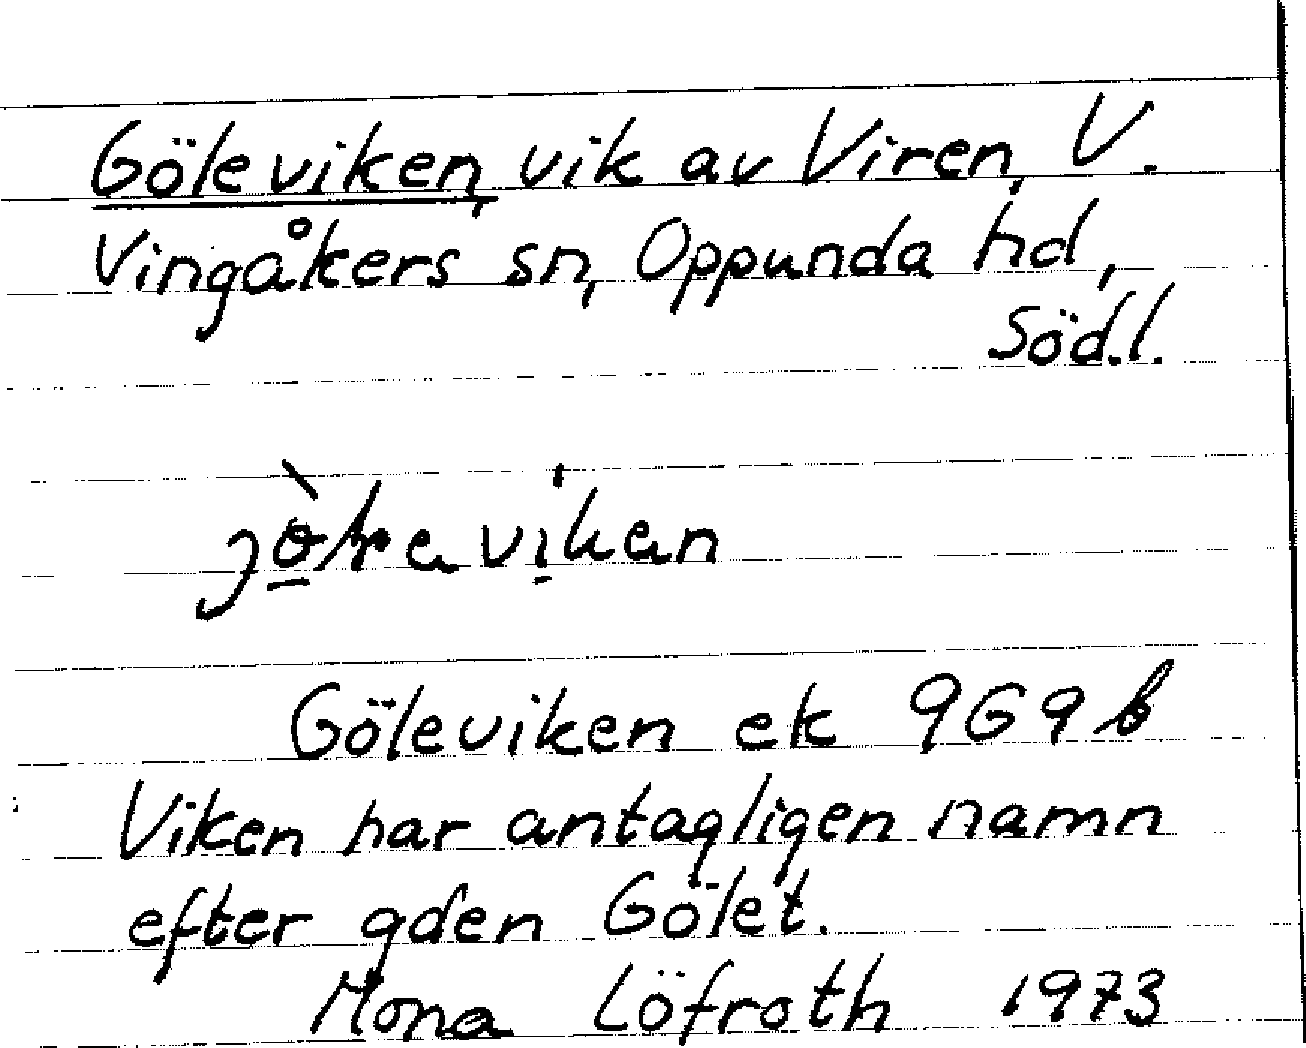 Göleviken, vik av Viren, V.
Vingåkers sn, Oppunda hd,
Söd.l.
Göleviken ek 9G9b
Viken har antagligen namn
efter gden Gölet.
Mona Löfroth 1973